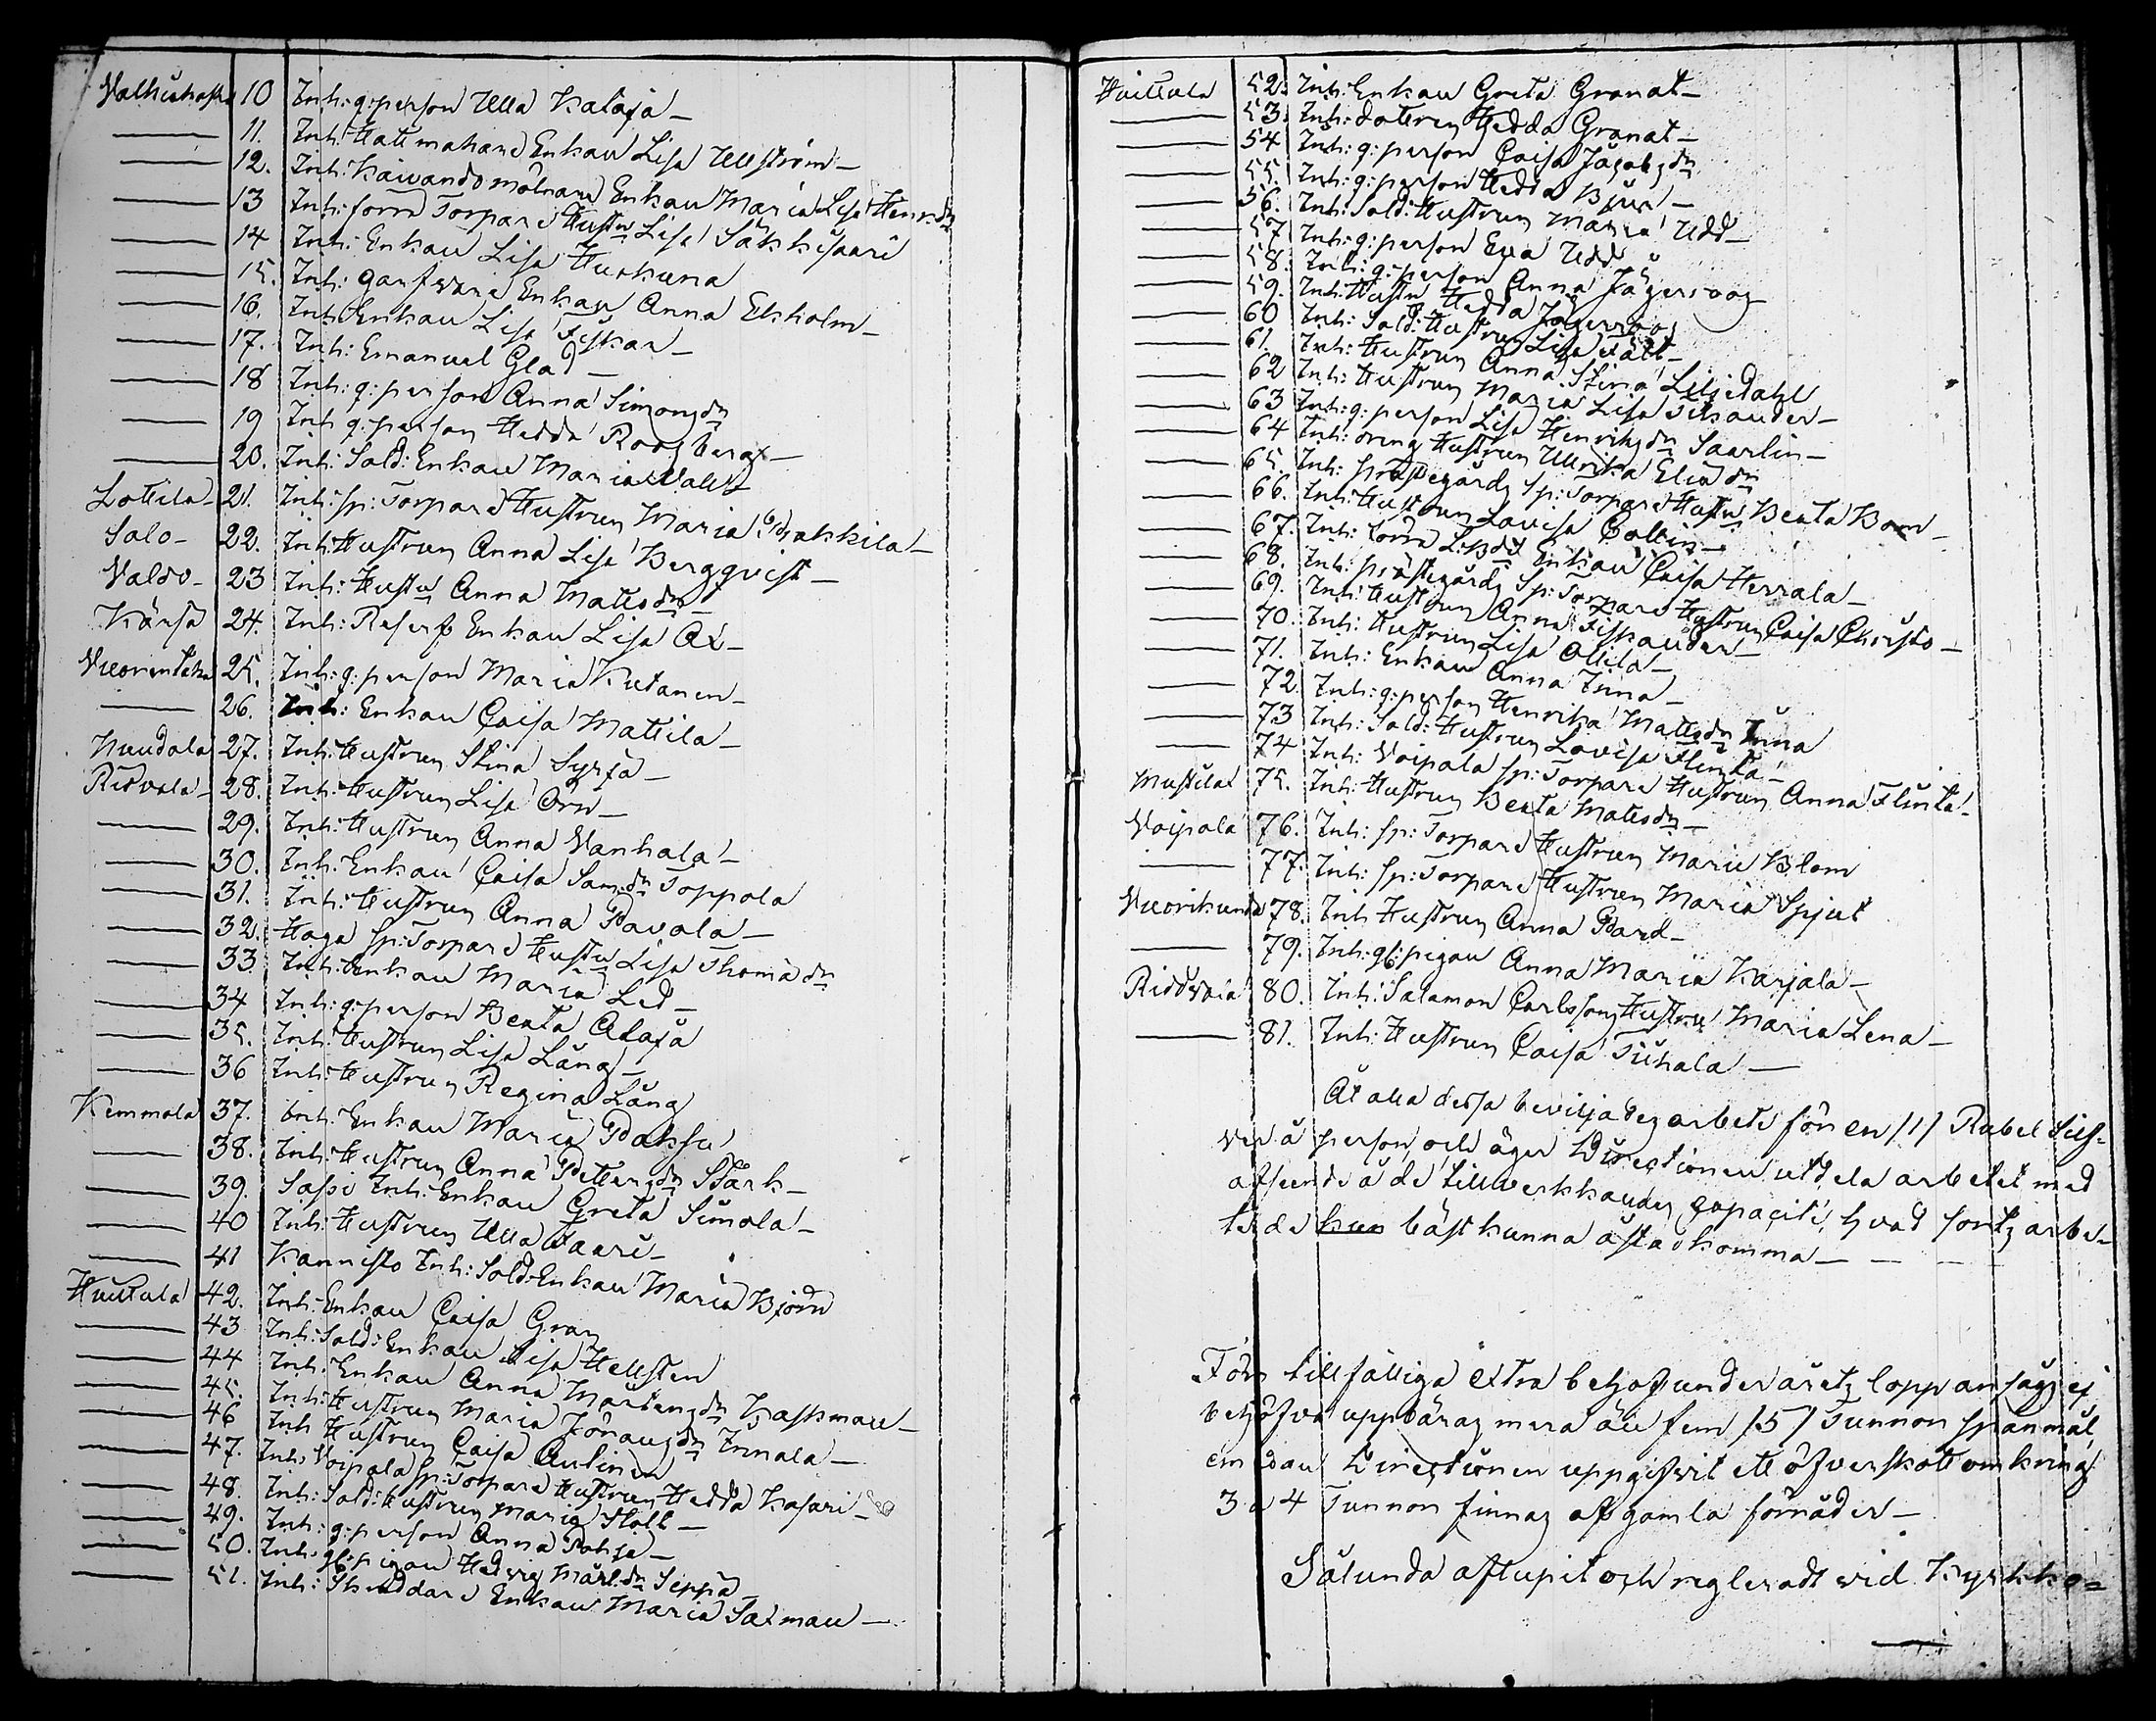 10 Inh: q: person Ulla Kataja —
—— 11. Inh: Hattmakare Enkan Lisa Ullström —
—— 12. Inh: Kaivando mölnare Enkan Maria Lisa Henr.dr
—— 13 Inh: förra Torpare Hustru Lisa Säkkisaari
—— 14 Inh: Enkan Lisa Huokuna
—— 15. Inh: garfware Enkan Anna Ekholm —
—— 16. Inh Enkan Lisa Fiskar —
—— 17. Inh: Emanuel Glad —
—— 18 Inh: q: person Anna Simonsdr
—— 19 Inh q: person Hedda Roosberg —
—— 20. Inh: Sold: Enkan Maria Vall
Lottila — 21. Inh: sp: Torpare Hustrun Maria Prakkila —
Salo — 22. Inh Hustrun Anna Lisa Bergqvist —
Valdo — 23 Inh: Hustru Anna Mattsdr —
Kärsa 24. Inh: Reserf Enkan Lisa Ax —
Vuorentaka 25. Inh: q: person Maria Kutanen —
—— 26. Inh: Enkan Caisa Mattila —
Nuudala 27. Inh: Hustrun Stina Syrjä —
Ridvala — 28. Inh: Hustrun Lisa Örn —
—— 29. Inh: Hustrun Anna Vanhala —
—— 30. Inh: Enkan Caisa Sam:dr Toppola
—— 31. Inh: Hustrun Anna Pavola —
—— 32. Haga sp: Torpare Hustru Lisa Thomädr
—— 33 Inh: Enkan Maria Led —
—— 34 Inh: q: person Beata Alaja
—— 35. Inh: Hustrun Lisa Lång —
—— 36 Inh: Hustrun Regina Lång
Kemmola 37. Inh: Enkan Maria Paksu
—— 38. Inh: Hustrun Anna Pettersdr Stark —
—— 39. Saspi Inh: Enkan Greta Simola —
—— 40 Inh: Hustrun Ulla Waari —
—— 41 Kannisto Inh: Sold: Enkan Maria Björn
Huittula 42. Inh: Enkan Caisa Gran
—— 43 Inh: Sold: Enkan Lisa Hellsten
—— 44 Inh: Enkan Anna Mårtensdr Kaskman —
—— 45. Inh: Hustrun Maria Johansdr Innala —
—— 46 Inh Hustrun Caisa Autinen
—— 47. Inh: Voipala sp: Torpare Hustrun Hedda Kasari —
—— 48. Inh: Sold: Hustrun Maria Stolt —
—— 49. Inh: q: person Anna Pohja —
—— 50. Inh: gl: pigan Hedvig Mårt.dr Seppä
—— 51. Inh: Skräddare Enkan Maria Saxman —
Huittula 52. Inh: Enkan Greta Granat —
—— 53 Inh: dottren Hedda Granat —
—— 54 Inh: q: person Caisa Jacobsdr
—— 55. Inh: q: person Hedda Bjur —
—— 56. Inh: Sold: Hustrun Maria Udd —
—— 57 Inh: q: person Eva Udd
—— 58. Inh: q: person Anna Jägerroos
—— 59. Inh: Hustru Hedda Jägerroos
—— 60 Inh: Sold: Hustrun Lisa Fält —
—— 61. Inh: Hustrun Anna Stina Liljedahl
—— 62 Inh: Hustrun Maria Lisa Tikander —
—— 63 Inh: q: person Lisa Henriksdr Saarlin —
—— 64 Inh: dreng Hustrun Ullrika Eliædr
—— 65. Inh: prästegårds sp: Torpare Hustru Beata Bom —
—— 66. Inh: Hustrun Lovisa Collin —
—— 67. Inh: förra Enkan Caisa Herrala —
—— 68. Inh: prästegårds Sp: Torpare Hustrun Caisa Christo —
—— 69. Inh: Hustrun Anna Fiskander —
—— 70. Inh: Hustrun Lisa Ollila —
—— 71. Inh: Enkan Anna Inna —
—— 72. Inh: q: person Henrika Mattsdr Inna
—— 73 Inh: Sold: Hustrun Lovisa Flinta —
—— 74 Inh: Voipala sp: Torpare Hustrun Anna Flinta —
Mustila 75. Inh: Hustrun Beata Mattsdr —
Voipala 76. Inh: sp: Torpare Hustrun Maria Blom
—— 77. Inh: sp: Torpare Hustrun Maria Spjut
Vuorikunda 78. Inh Hustrun Anna Pard —
—— 79. Inh: gl: pigan Anna Maria Karjala —
Riddvala 80. Inh: Salamon Carlssons Hustru Maria Lena —
—— 81. Inh: Hustrun Caisa Tuhala —
Åt alla dessa beviljades arbete för en /1/ Rubel Silf-
ver å person, och äger Directionen utdela arbetet med
afseende å de tillverkkandes capacité, hvad sorts arbe-
te de kun bäst kunna åstadkomma —
För tillfälliga extra behof under årets lopp ansågs ej
behöfva uppbäras mera än fem /5/ Tunnor spanmål,
emedan Directionen uppgifvit ett öfverskott omkring
3 a 4 Tunnor finnas af gamla förråder —
Sålunda aftupit och regleradt vid Kyrkko-